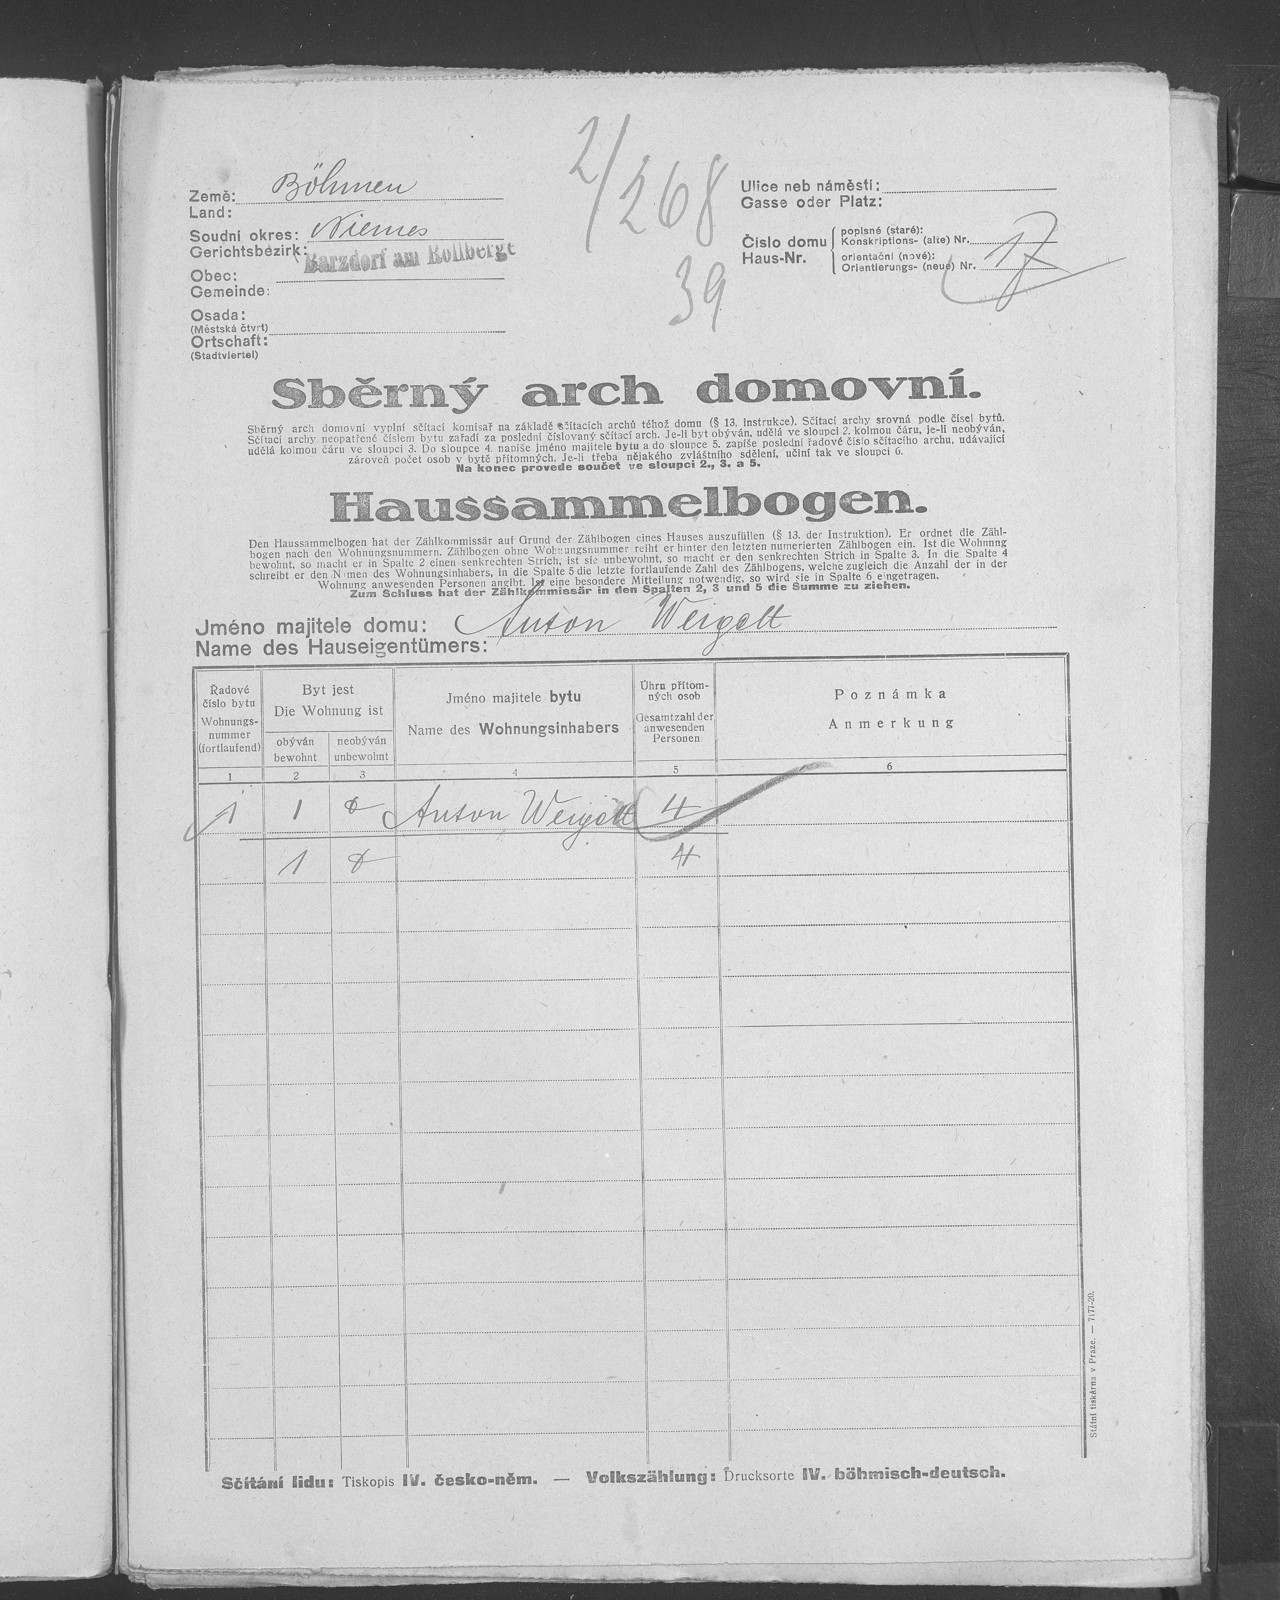 2/268
39
Země: Böhmen
Land:
Soudní okres: Niemes
Gerichtsbezirk:
Barzdorf am Rollberge
Obec:
Gemeinde:
Osada:
(Městská čtvrť)
Ortschaft:
(Stadtviertel)
Ulice neb náměstí:
Gasse oder Platz:
Číslo domu
Haus-Nr.
popisné (staré):
Konskriptions- (alte) Nr.
orientační (nové):
Orientierungs- (neue) Nr. 17
Sběrný arch domovní.
Sběrný arch domovní vyplní sčítací komisař na základě sčítacích archů téhož domu (§ 13. instrukce). Sčítací archy srovná podle čísel bytů.
Sčítací archy neopatřené číslem bytu zařadí za poslední číslovaný sčítací arch. Je-li byt obýván, udělá ve sloupci 2. kolmou čáru, je-li neobýván,
udělá kolmou čáru ve sloupci 3. Do sloupce 4. napíše jméno majitele bytu a do sloupce 5. zapíše poslední řadové číslo sčítacího archu, udávající
zároveň počet osob v bytě přítomných. Je-li třeba nějakého zvláštního sdělení, učiní tak ve sloupci 6.
Na konec provede součet ve sloupci 2., 3. a 5.
Haussammelbogen.
Den Haussammelbogen hat der Zählkommissär auf Grund der Zählbogen eines Hauses auszufüllen (§ 13. der Instruktion). Er ordnet die Zähl-
bogen nach den Wohnungsnummern. Zählbogen ohne Wohnungsnummer reiht er hinter den letzten numerierten Zählbogen ein. Ist die Wohnung
bewohnt, so macht er in Spalte 2 einen senkrechten Strich, ist sie unbewohnt, so macht er den senkrechten Strich in Spalte 3. In die Spalte 4
schreibt er den Namen des Wohnungsinhabers, in die Spalte 5 die letzte fortlaufende Zahl des Zählbogens, welche zugleich die Anzahl der in der
Wohnung anwesenden Personen angibt. Ist eine besondere Mitteilung notwendig, so wird sie in Spalte 6 eingetragen.
Zum Schluss hat der Zählkommissär in den Spalten 2, 3 und 5 die Summe zu ziehen.
Jméno majitele domu: Anton Weigelt
Name des Hauseigentümers:
Řadové
číslo bytu
Wohnungs-
nummer
(fortlaufend)
Byt jest
Die Wohnung ist
obýván
bewohnt
neobýván
unbewohnt
Jméno majitele bytu
Name des Wohnungsinhabers
Úhrn přítom-
ných osob
Gesamtzahl der
anwesenden
Personen
Poznámka
Anmerkung
1 2 3 4 5 6
1 1 0 Anton Weigelt 4
1 0 4
Státní tiskárna v Praze. — 7177-20.
Sčítání lidu: Tiskopis IV. česko-něm. — Volkszählung: Drucksorte IV. böhmisch-deutsch.